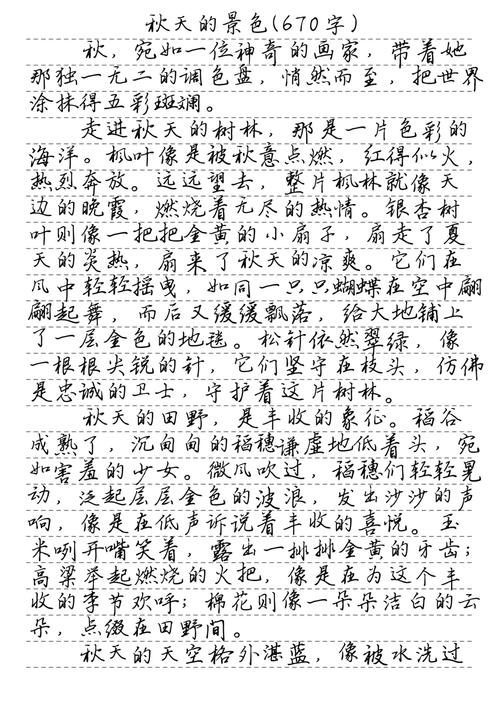 秋天的景色(670字)
秋，宛如一位神奇的画家，带着她
那独一无二的调色盘，悄然而至，把世界
涂抹得五彩斑斓。
走进秋天的树林，那是一片色彩的
海洋。枫叶像是被秋意点燃，红得似火，
热烈奔放。远远望去，整片枫林就像天
边的晚霞，燃烧着无尽的热情。银杏树
叶则像一把把金黄的小扇子，扇走了夏
天的炎热，扇来了秋天的凉爽。它们在
风中轻轻摇曳，如同一只只蝴蝶在空中翩
翩起舞，而后又缓缓飘落，给大地铺上
了一层金色的地毯。松针依然翠绿，像
一根根尖锐的针，它们坚守在枝头，仿佛
是忠诚的卫士，守护着这片树林。
秋天的田野，是丰收的象征。稻谷
成熟了，沉甸甸的稻穗谦虚地低着头，宛
如害羞的少女。微风吹过，稻穗们轻轻晃
动，泛起层层金色的波浪，发出沙沙的声
响，像是在低声诉说着丰收的喜悦。玉
米咧开嘴笑着，露出一排排金黄的牙齿；
高粱举起燃烧的火把，像是在为这个丰
收的季节欢呼；棉花则像一朵朵洁白的云
朵，点缀在田野间。
秋天的天空格外湛蓝，像被水洗过